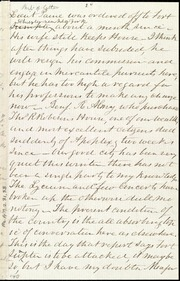 Lieut Paine was ordered off to Fort
about a month since
his wife still keeps House. I think
after things have subsided he
will resign his commission and
engage in Mercantile pursuits here,
but he has too high a regard for
his profession to make him any
now. Benj. R. Alary, who purchased
Thos R Robins House, one of our wealthy
and most excellent citizens died
suddenly of Apoplexy two weeks
since. Our fair city has been
quiet this winter, there has not
been a single party to my knowledge.
The Lyceum and few lectures have
broken up the otherwise dull mo-
notony. The present condition of
the country is the all absorbing top-
ic of conversation here as elsewhere
This is the day that report says Fort
Sumpter is to be attacked. It may be
so but I have my doubts.